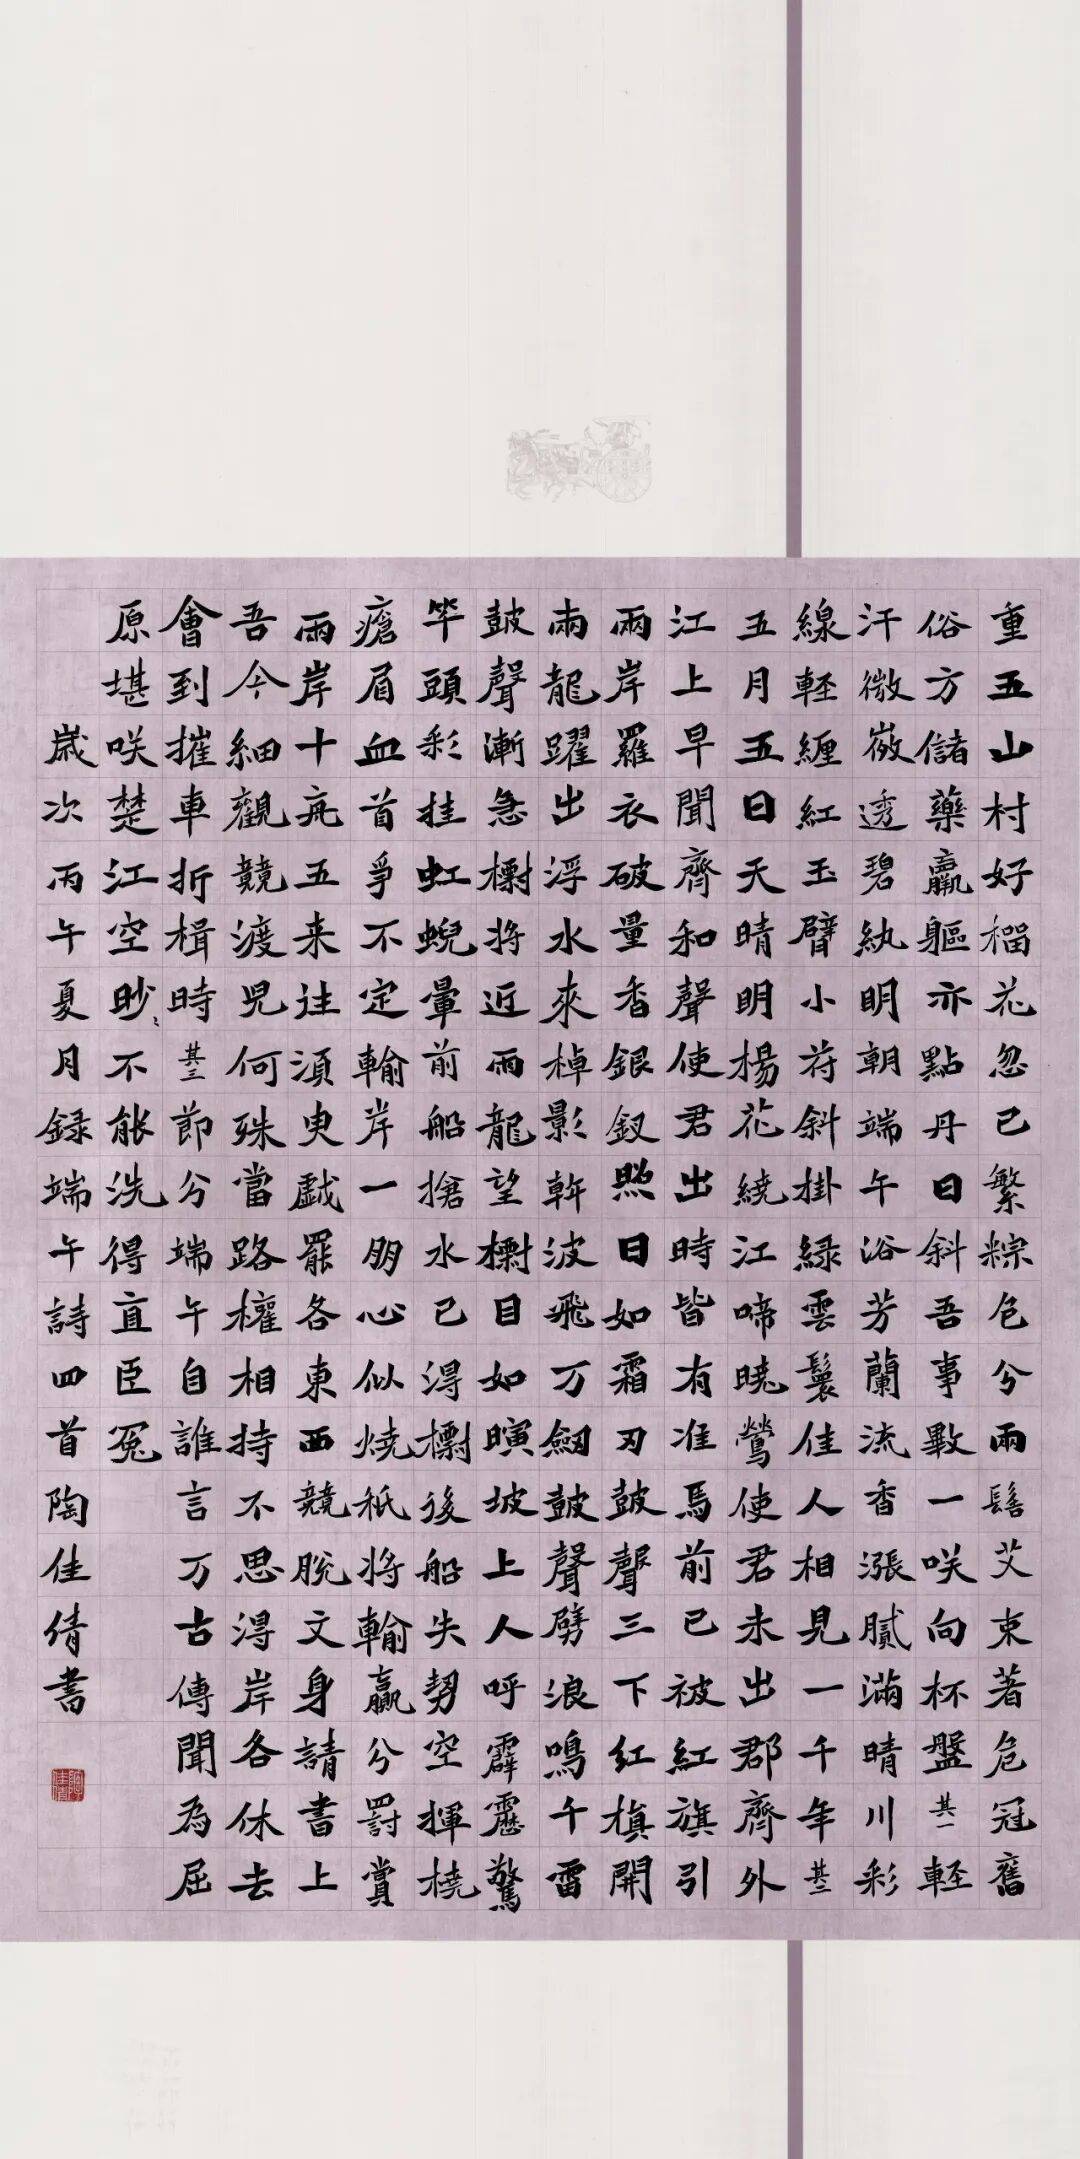 重五山村好榴花忽已繁粽包分兩髻艾束著危冠舊
俗方儲藥羸軀亦點丹日斜吾事畢一咲向杯盤其一輕
汗微微透碧紈明朝端午浴芳蘭流香漲膩滿晴川彩
線輕纏紅玉臂小符斜掛綠雲鬟佳人相見一千年其二
五月五日天晴明楊花繞江啼曉鶯使君未出郡齊外
江上早聞齊和聲使君出時皆有准馬前已被紅旗引
兩岸羅衣破量香銀釵照日如霜刃鼓聲三下紅旗開
兩龍躍出浮水來棹影斡波飛万劔鼓聲劈浪鳴千雷
鼓聲漸急標將近兩龍望標目如瞚坡上人呼霹靂驚
竿頭彩挂虹蜺暈前船搶水已得標後船失勢空揮橈
瘡眉血首爭不定輸岸一朋心似燒秖將輸贏分罰賞
兩岸十舟五来往須臾戲罷各東西競脫文身請書上
吾今細觀競渡兒何殊當路權相持不思得岸各休去
會到摧車折楫時其三節分端午自誰言万古傳聞為屈
原堪咲楚江空眇〻不能洗得直臣冤
歲次丙午夏月録端午詩四首陶佳倩書
陶佳倩